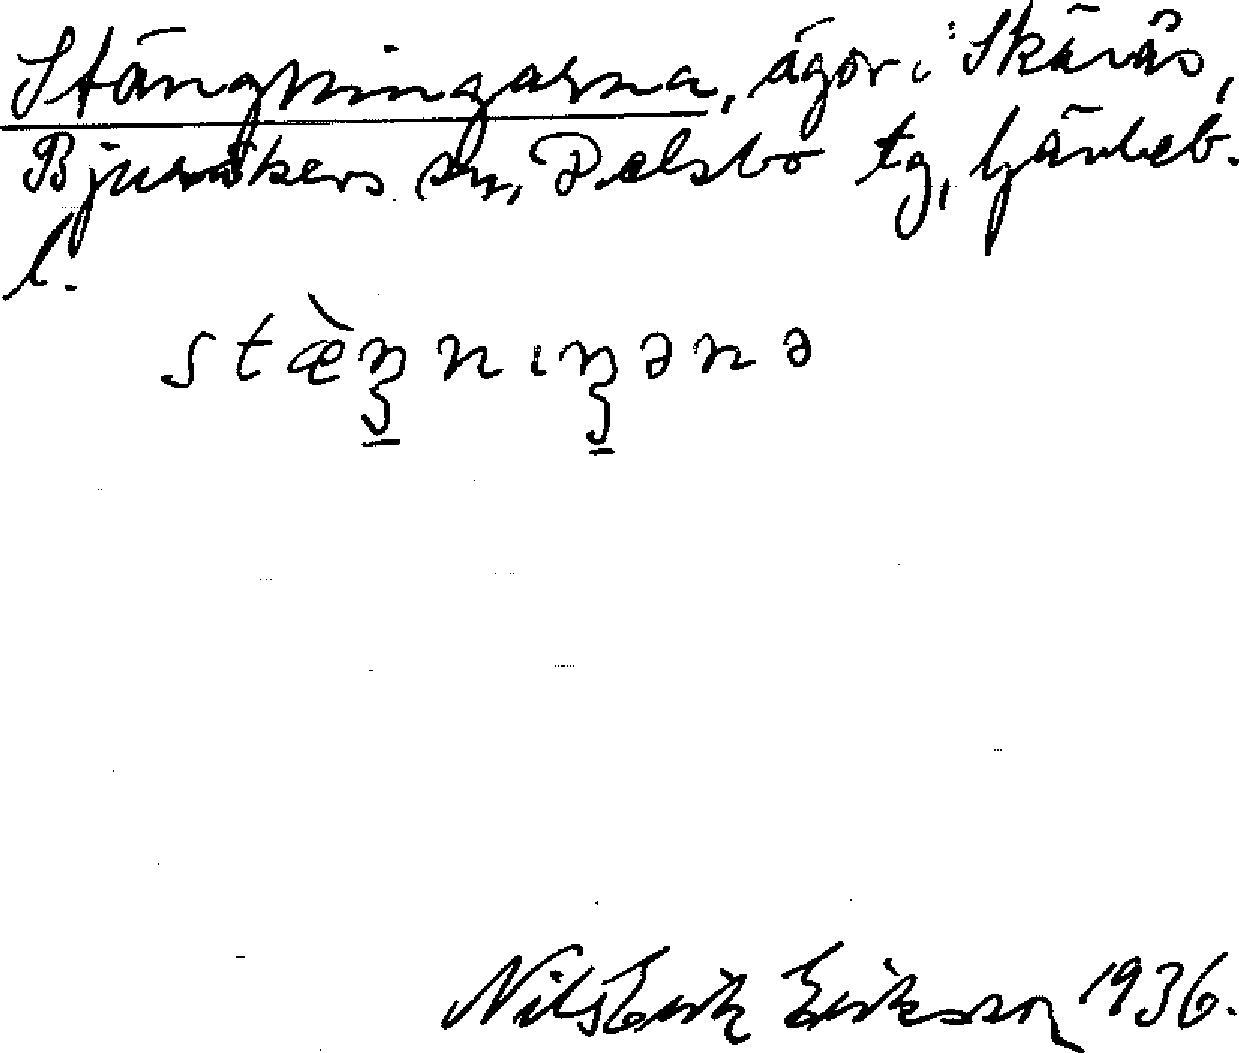 Stängningarna, ägor i Skärås,
Bjuråkers sn, Delsbo tg, Gävleb.
l.
stæ̀ŋnɩŋənə
Nils Erik Eriksson 1936.